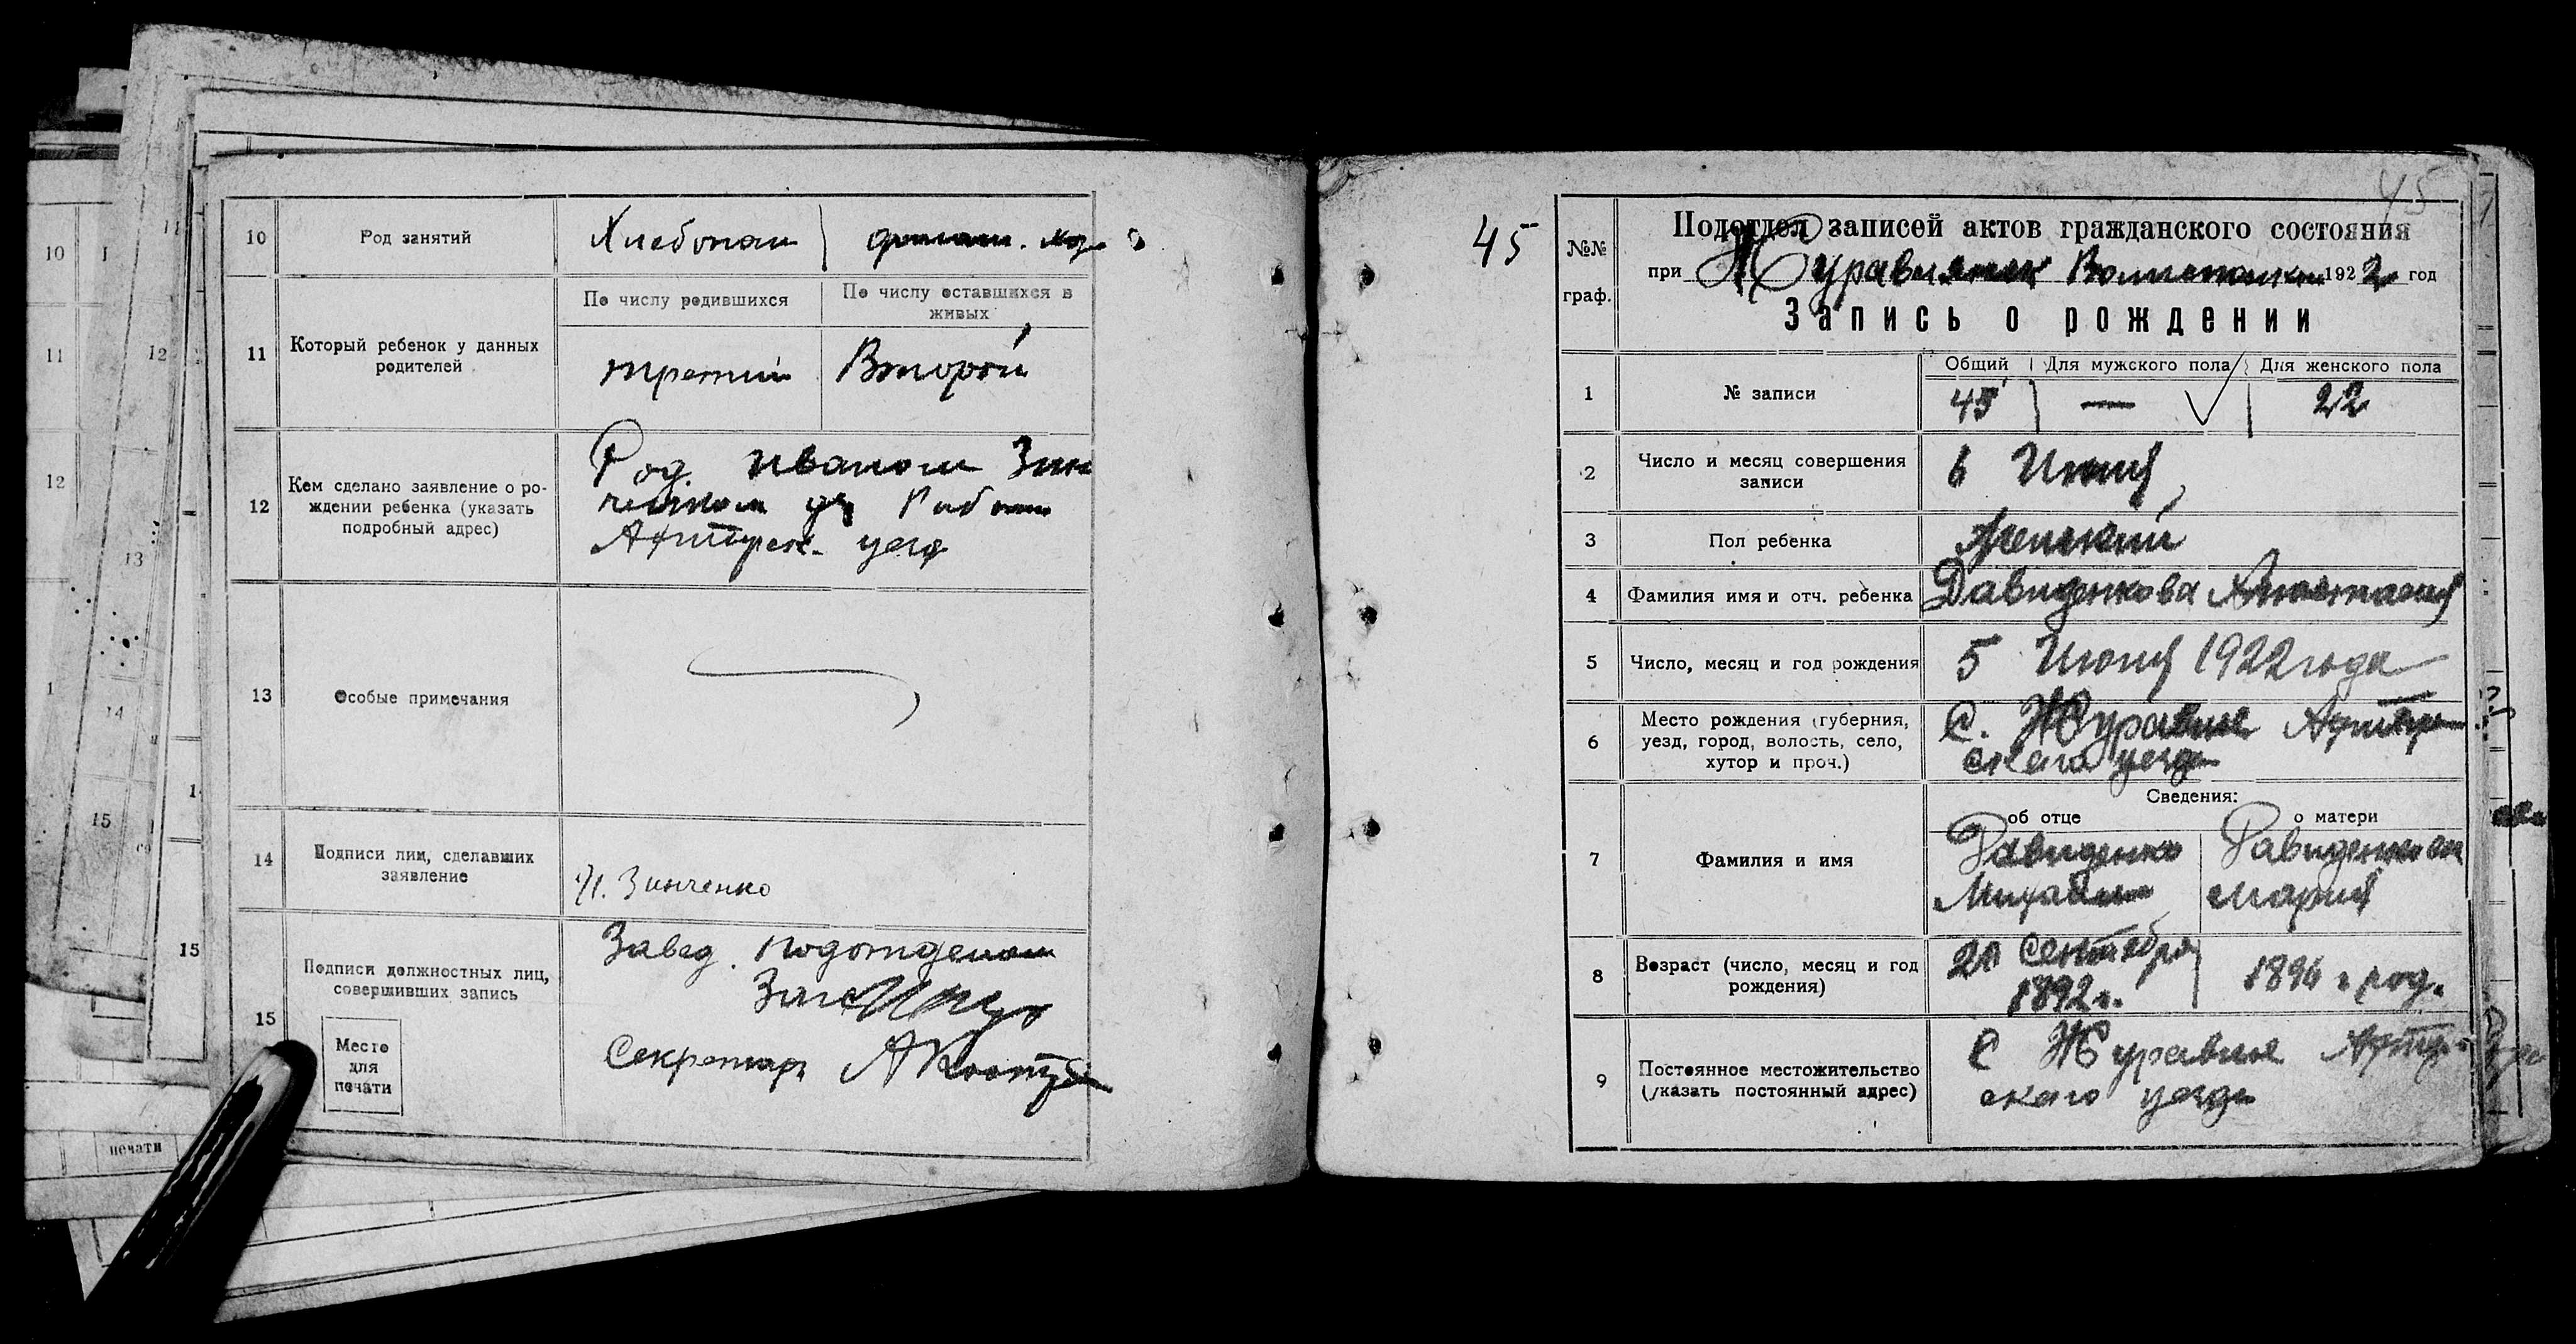 10
Род занятий
Хлебопаш
домаш. хоз
11
Который ребенок у данных
родителей
По числу родившихся
По числу оставшихся в
живых
третий
Второй
12
Кем сделано заявление о ро-
ждении ребенка (указать
подробный адрес)
Род. Иваном Зин
ченком
уезд
13
Особые примечания
14
Подписи лиц, сделавших
заявление
И. Зинченко
15
Подписи должностных лиц,
совершивших запись
Место
для
печати
Завед. подотделом
Секретарь
10
11
12
1
11
12
13
14
15
15
печати
45
45
№№
граф.
Подотдел записей актов гражданского состояния
при 1922 год
Запись о рождении
1
№ записи
Общий
Для мужского пола
Для женского пола
45
—
22
2
Число и месяц совершения
записи
6 Июня
3
Пол ребенка
Женский
4
Фамилия имя и отч. ребенка
Давиденкова Анастасия
5
Число, месяц и год рождения
5 Июня 1922 года
6
Место рождения (губерния,
уезд, город, волость, село,
хутор и проч.)
С. Журавне
ского уезда
Сведения:
об отце
о матери
7
Фамилия и имя
Давиденко
Михаил
Давиденкова
Мария
8
Возраст (число, месяц и год
рождения)
Сентября
1892 г.
1896 г. род.
9
Постоянное местожительство
(указать постоянный адрес)
С Журавне
ского уезда